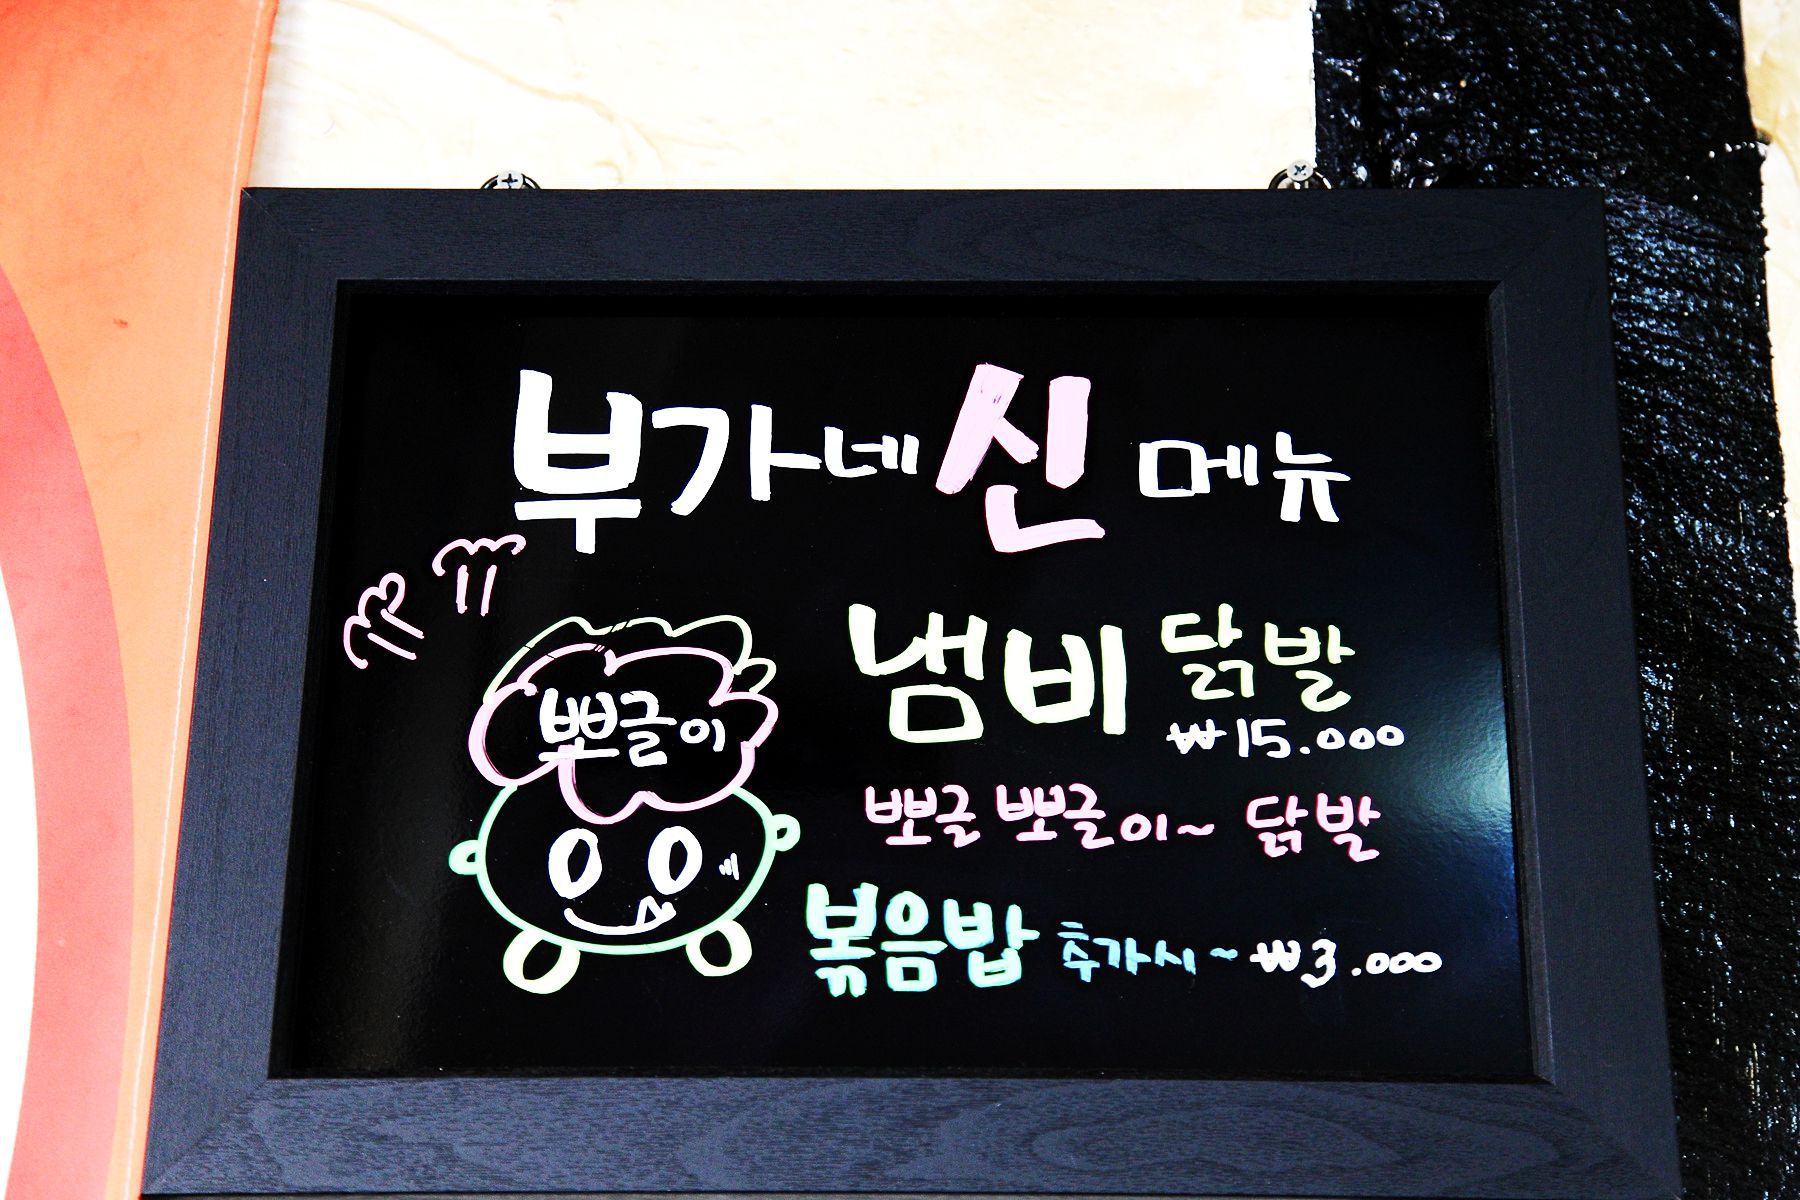 부가네 신 메뉴
냄비 닭발
₩15.000
뽀글이
뽀글 뽀글이~ 닭발
볶음밥 추가시~ ₩3.000